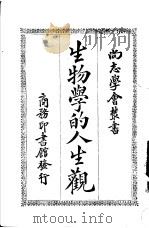 尚志學會叢書
生物學的人生觀
商務印書館發行
www.toutu001.com